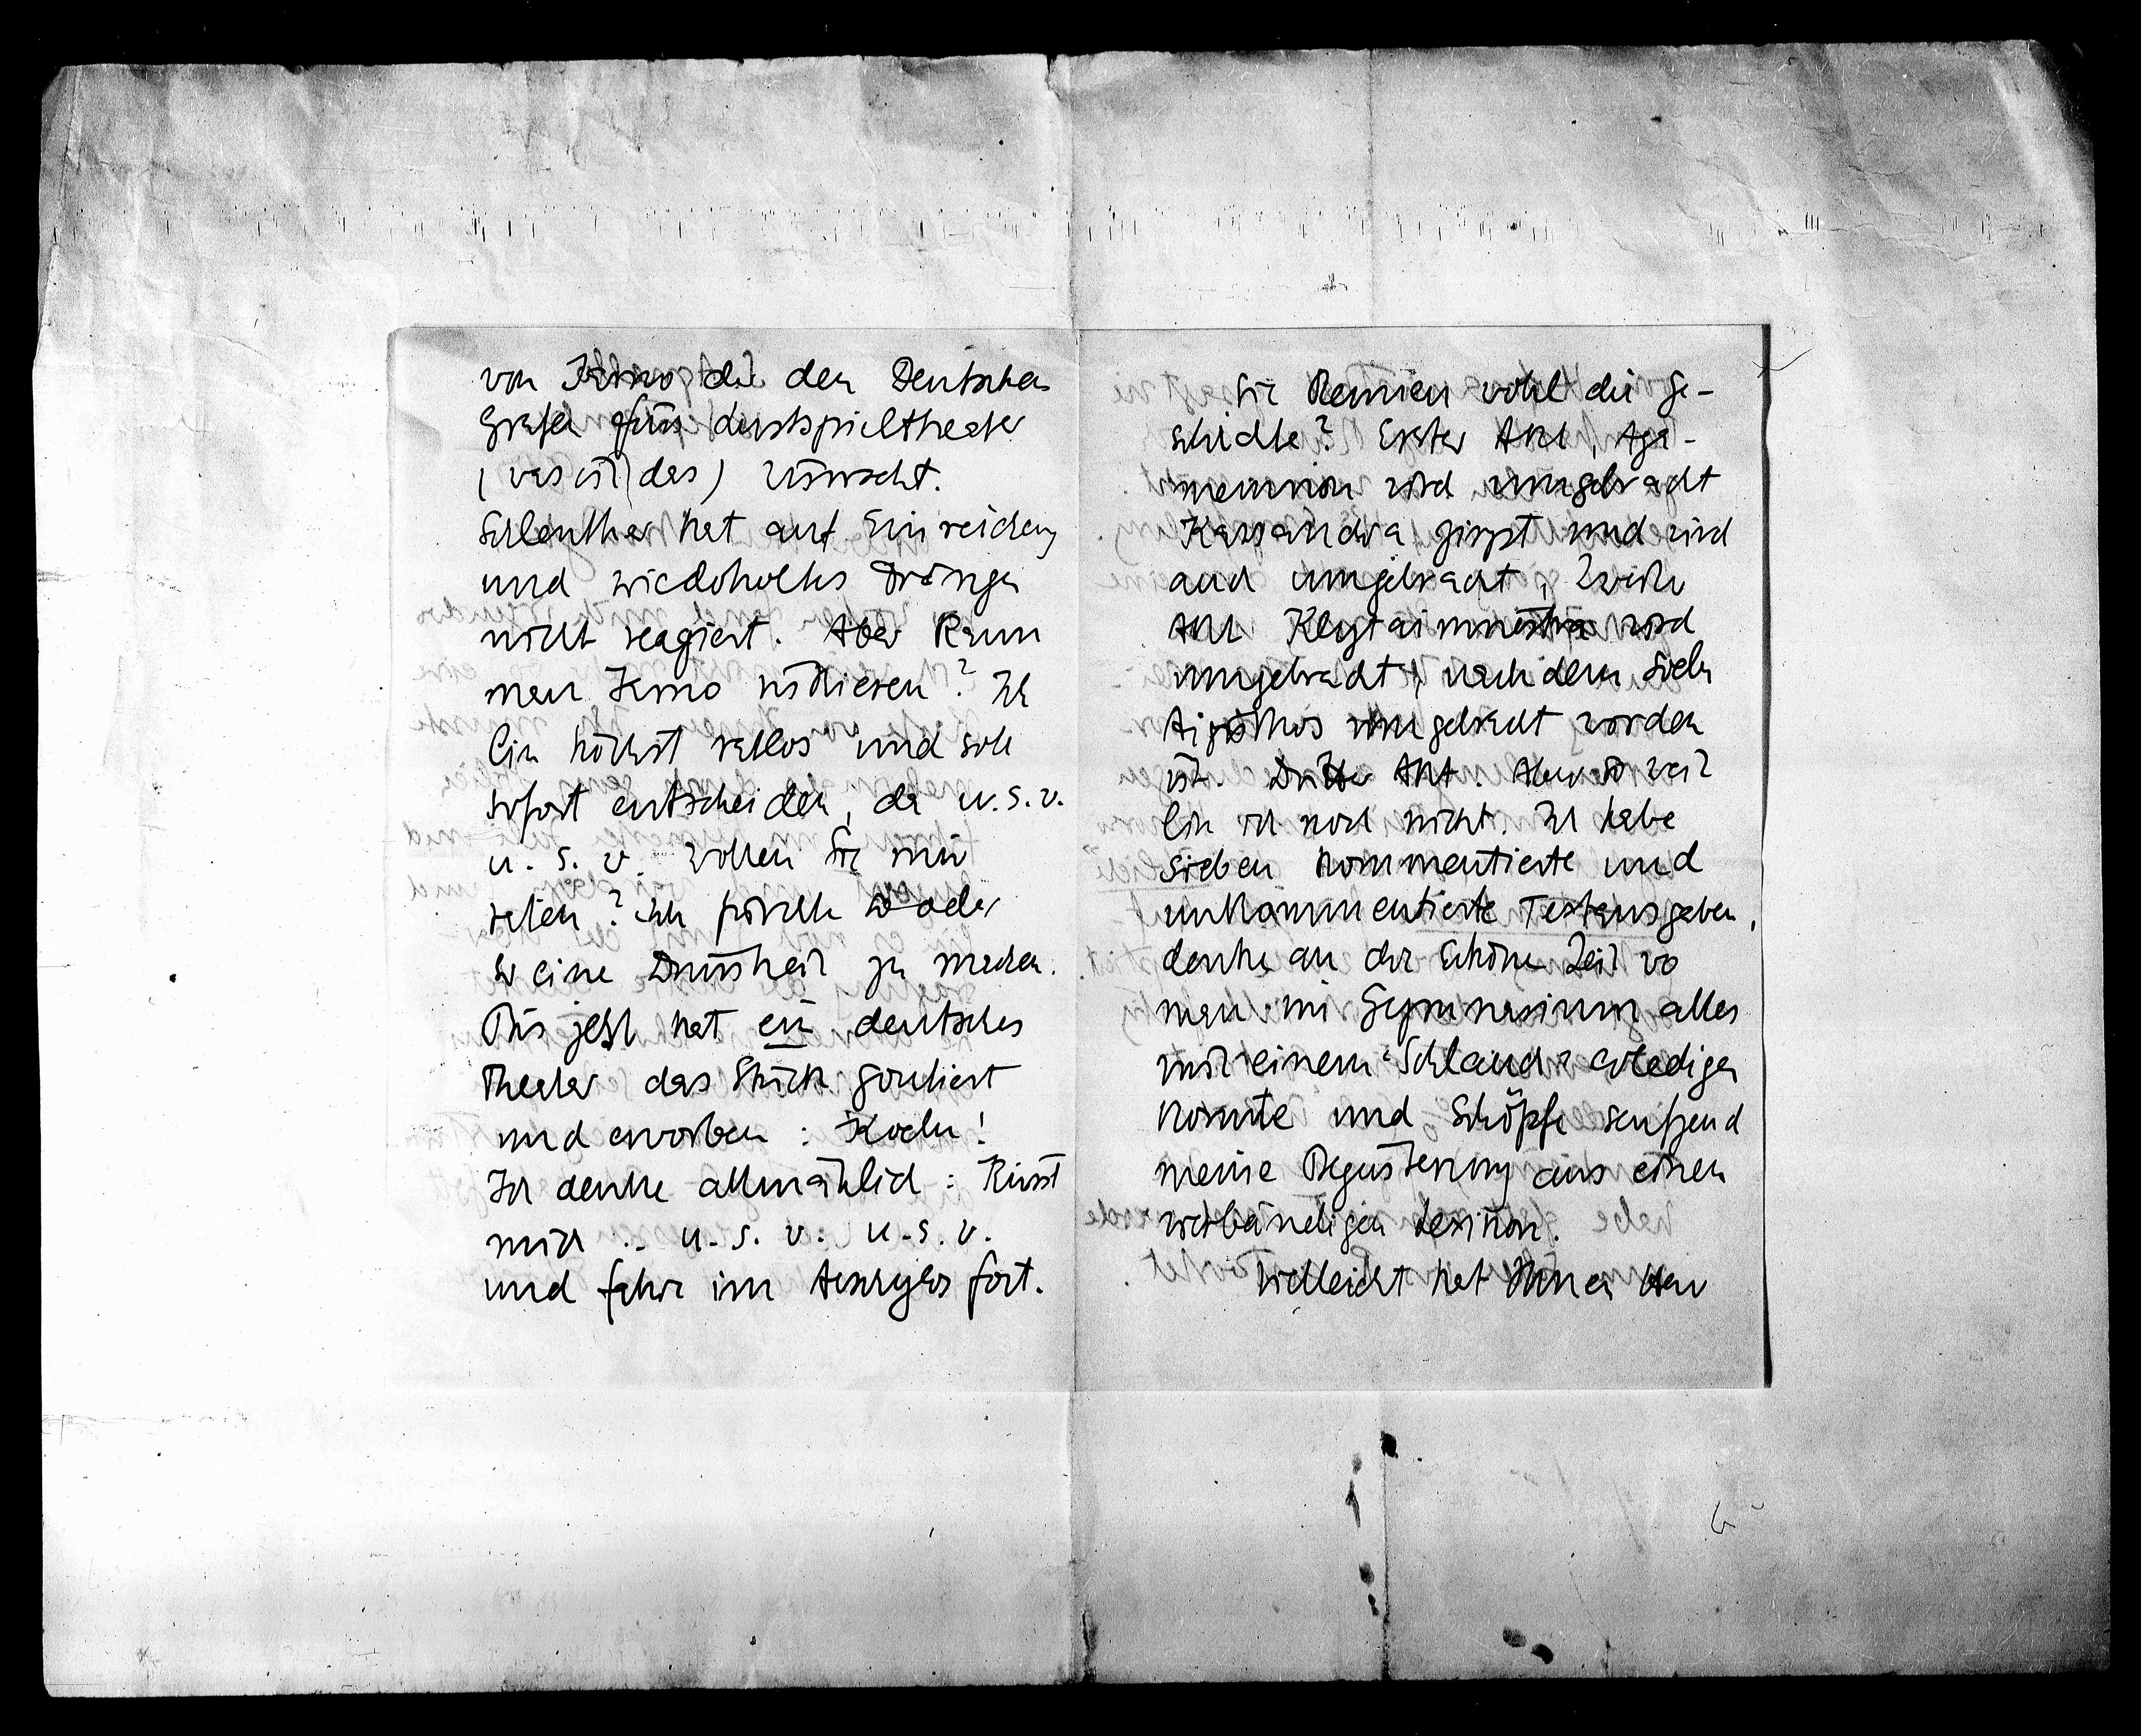 von Jarno die den Deutschen
Grafen fürs Lustspieltheater
(was ist das) wünscht.
Schlenther hat auf Einreichung
und wiederholtes Drängen
nicht reagiert. Aber kann
man Jarno riskieren? Ich
bin höchst ratlos und soll
sofort entscheiden, da u.s.w.
u.s.w. Wollen Sie mir
raten? Ich fürchte so oder
so eine Dummheit zu machen.
Bis jetzt hat ein deutsches
Theater das Stück goutiert
und erworben: Koeln!
Ich denke allmählich: Küsst
mich .. u.s.w. u.s.w.
und fahre im Aeschylos fort.
Sie kennen wohl die Ge-
schichte? Erster Akt, Aga-
memnon wird umgebracht
Kassandra girpt und wird
auch umgebracht, Zweiter
Akt Klytaimnestra wird
umgebracht, nachdem soeben
Aigisthos umgebracht worden
ist. Dritter Akt. Aber so weit
bin ich noch nicht. Ich habe
sieben kommentierte und
unkommentierte Textausgaben,
denke an die schöne Zeit wo
man im Gymnasium alles
mit einem "Schlauch" erledigen
konnte und schöpfe seufzend
meine Begeisterung aus einem
zweibändigen Lexikon.
Vielleicht hat Ihnen Herr